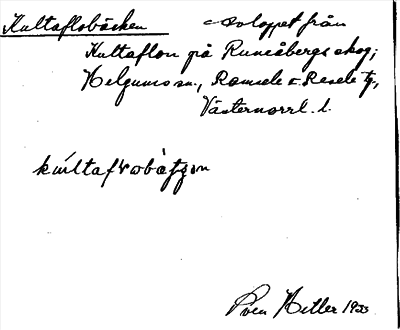 Kultaflobäcken avloppet från
Kultaflon på Runsåbergs skog;
Helgums sn, Ramsele o. Resele tg,
Västernorrl. l.
Sven Heller 1935